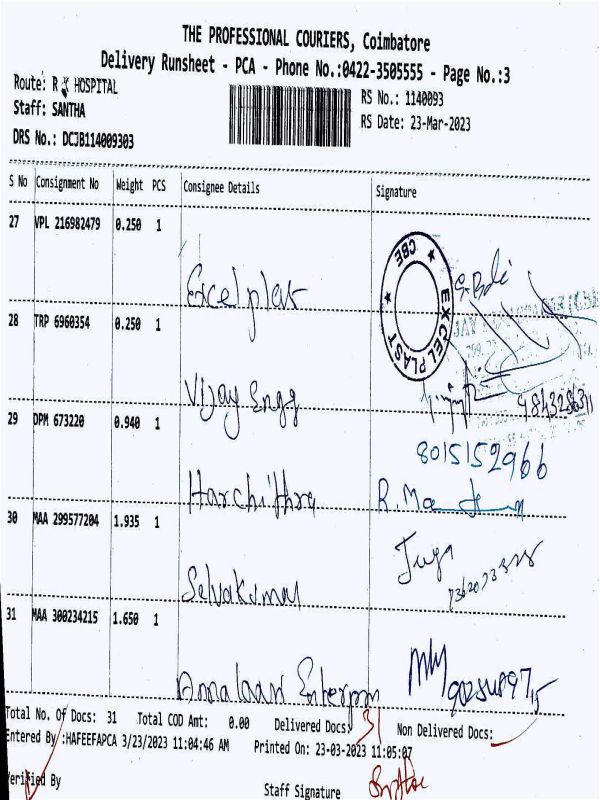 THE PROFESSIONAL COURIERS, Coimbatore
Delivery Runsheet - PCA - Phone No.:0422-3505555 - Page No.:3
Route: R HOSPITAL
Staff: SANTHA
DRS No.: DCJB114009303
RS No.: 1140093
RS Date: 23-Mar-2023
S No Consignment No Weight PCS Consignee Details Signature
27 VPL 216982479 0.250 1
Excel plast
CBE EXCEL PLAST
28 TRP 6960354 0.250 1
Vijay Engg
29 DPM 673220 0.940 1
8015152966
Harchithra R.Ma
30 MAA 299577204 1.935 1
Selvakumar
31 MAA 300234215 1.650 1
Annalaxmi
Total No. Of Docs: 31 Total COD Amt: 0.00 Delivered Docs: 31 Non Delivered Docs:
Entered By :HAFEEFAPCA 3/23/2023 11:04:46 AM Printed On: 23-03-2023 11:05:07
Verified By Staff Signature